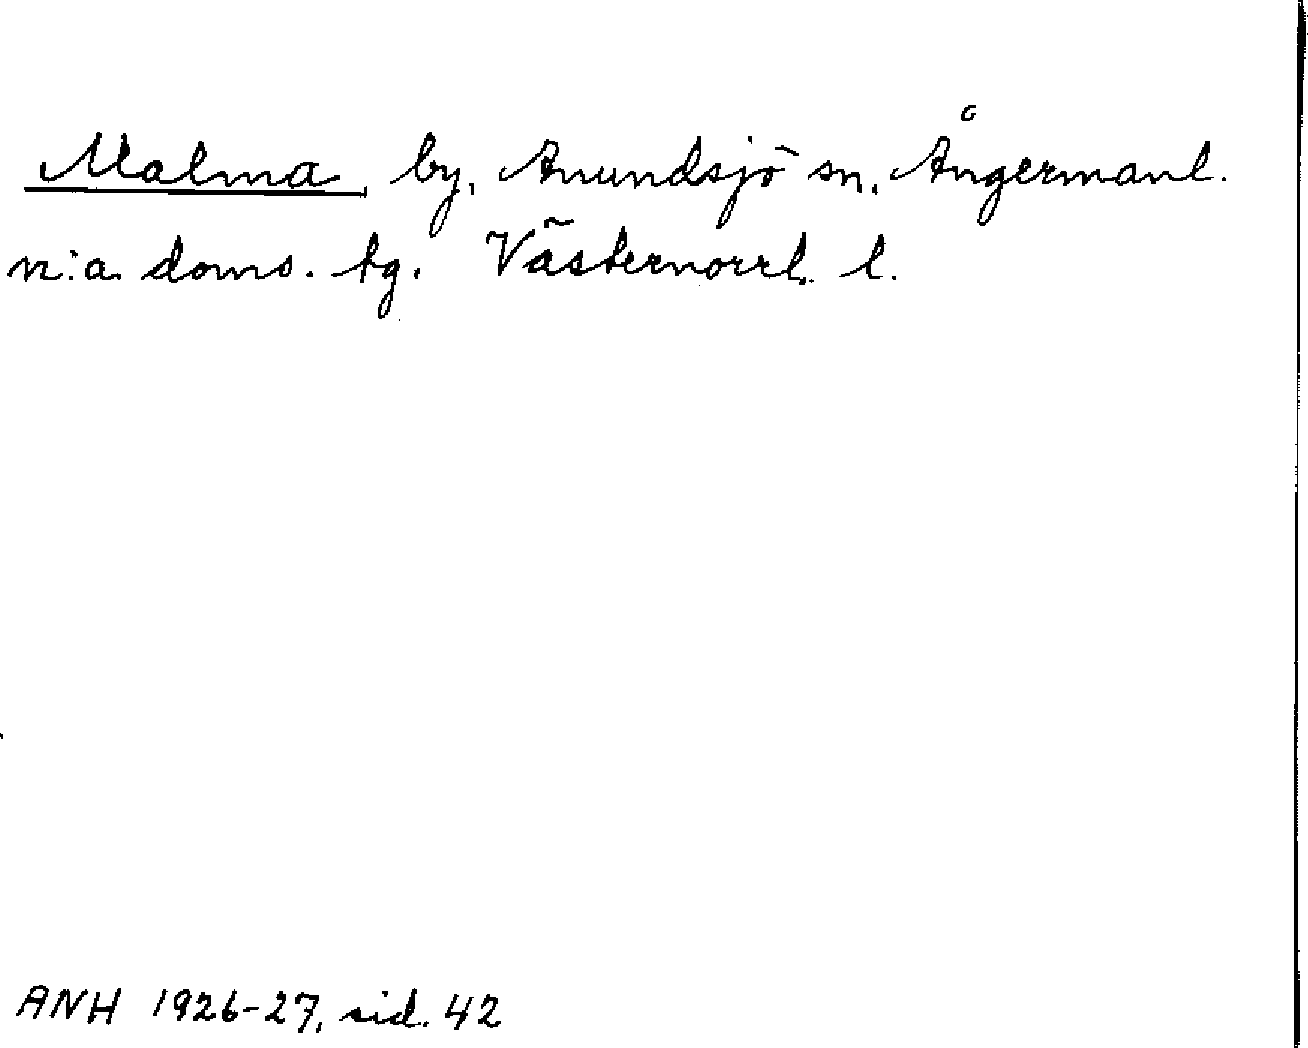 Malma, by, Anundsjö sn, Ångermanl.
n:a doms. tg. Västernorrl. l.
ANH 1926-27, sid. 42